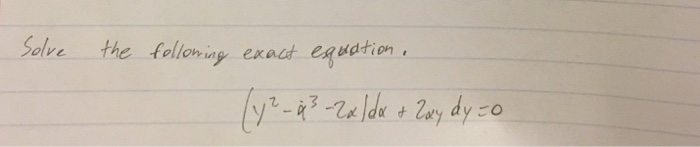 Solve the following exact equation.
(y² - x³ - 2x)dx + 2xy dy = 0